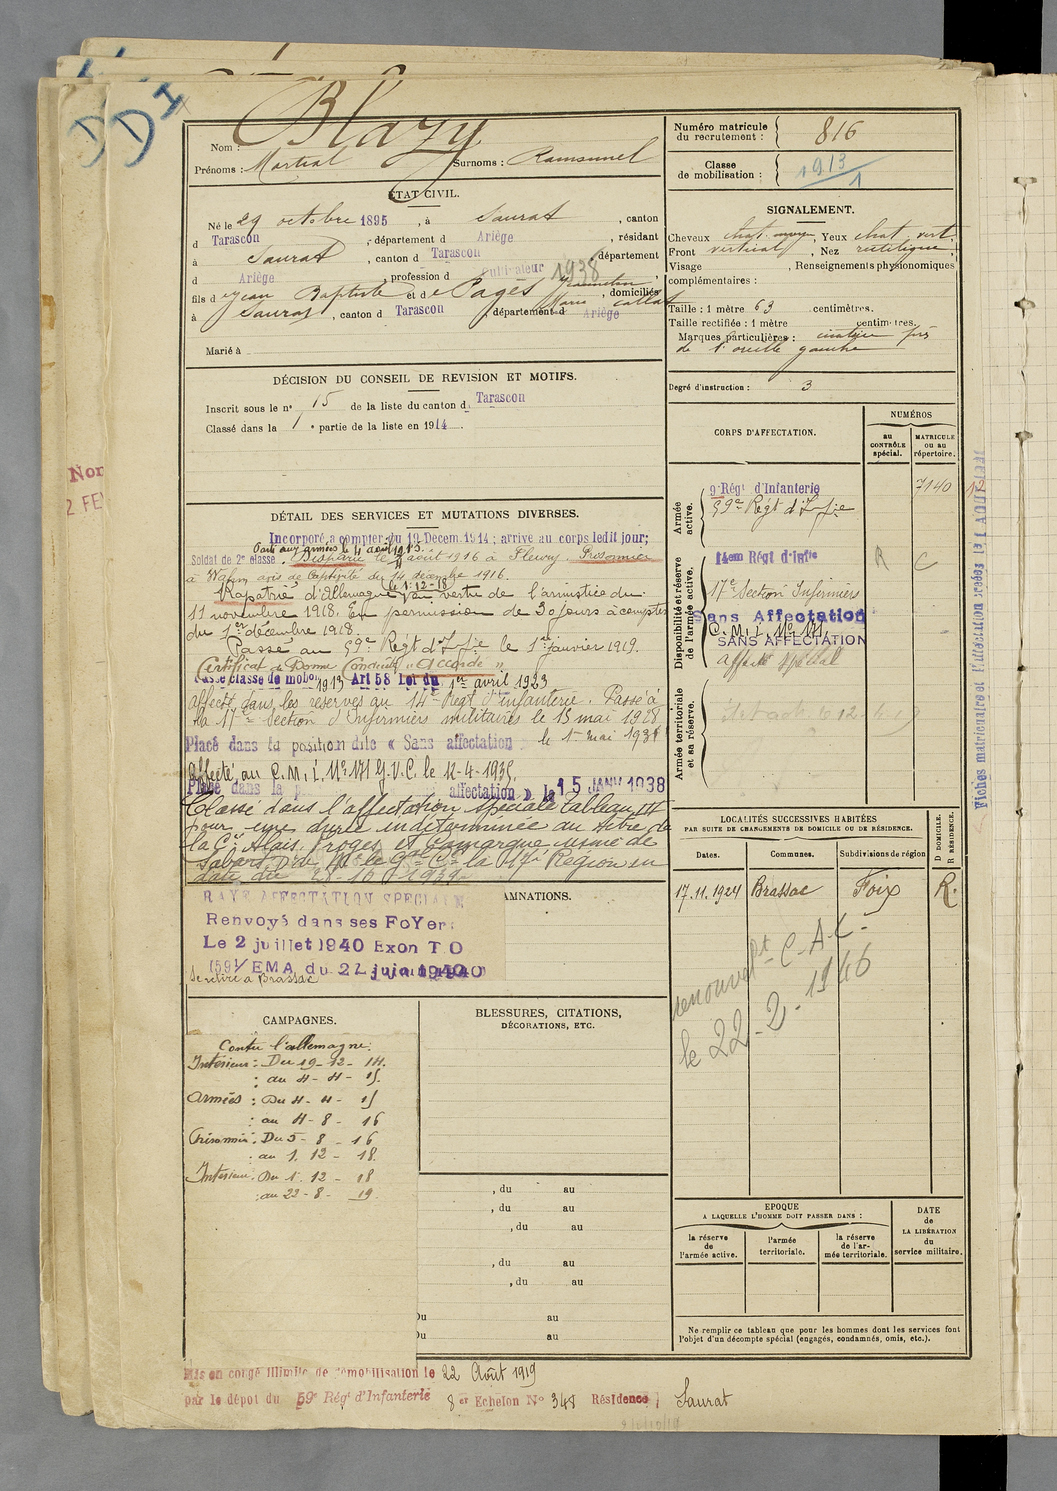 DDI
Blazy
Nom :
Prénoms : Martial Surnoms : Ramounel
ETAT CIVIL.
Né le 29 octobre 1895, à Saurat, canton
d Tarascon, département d Ariège, résidant
à Saurat, canton d Tarascon, département
d Ariège, profession d Cultivateur 1938
fils d e Jean Baptiste et de Pagès Jeannette Marie, domiciliés
à Saurat, canton d Tarascon, département d Ariège
Marié à
DÉCISION DU CONSEIL DE REVISION ET MOTIFS.
Inscrit sous le n° 15 de la liste du canton d Tarascon
Classé dans la 1e partie de la liste en 1914
DÉTAIL DES SERVICES ET MUTATIONS DIVERSES.
Incorporé à compter du 19 Décem. 1914; arrivé au corps ledit jour;
Soldat de 2e classe. Parti aux armées le 4 août 1915. Disparu le août 1916 à Fleury. Prisonnier
à avis de Captivité du 14 décembre 1916.
Rapatrié d'Allemagne le 1-12-18 en vertu de l'armistice du
11 novembre 1918. En permission de 30 jours à compter
du 1er décembre 1918.
Passé au 59e Régt d'Infie le 1er janvier 1919.
Certificat de Bonne Conduite "Accordé"
classe de mobon 1913 Art 58 Loi du 1er avril 1923
affecté dans les réserves au 14e Régt d'infanterie. Passé à
la 17e Section d'Infirmiers militaires le 15 mai 1928
Placé dans la position dite « Sans affectation » le 1er mai 193
Affecté au C.M.I. N° 171 G.V.C. le 12-4-1935.
Placé dans la p affectation » le 15 JANV 1938
Classé dans l'affectation spéciale tableau III
pour une durée indéterminée au titre de
la Cie Alais, Froges et Camargue usine de
Sabart Don de Mr le Gal Ct la 17e Région en
date du 28-10-1939.
RAYÉ AFFECTATION SPECIALE
AMINATIONS.
Renvoyé dans ses FoYers
Le 2 juillet 1940 Exon T O
1591/EMA du 24 juin 1940
Se retire à Brassac
CAMPAGNES.
Contre l'allemagne:
Intérieur : Du 19-12-14.
: au 4-4-15.
Armées : Du 4-4-15
: au 4-8-16
Prisonnier : Du 5-8-16
: au 1.12-18.
Intérieur : Du 1.12-18
: au 22-8-19.
BLESSURES, CITATIONS,
DÉCORATIONS, ETC.
, du au
, du au
, du au
, du au
, du au
Du au
Du au
Mis en congé illimité de démobilisation le 22 Août 1919
par le dépot du 59e Régt d'Infanterie 8er Echelon N° 348 Résidence Saurat
Numéro matricule
du recrutement : 816
Classe
de mobilisation : 1913
1
SIGNALEMENT.
Cheveux chat. moyen, Yeux chat. vert.
Front vertical, Nez rectiligne
Visage , Renseignements physionomiques
complémentaires :
Taille : 1 mètre 63 centimètres.
Taille rectifiée : 1 mètre centimètres.
Marques particulières : cicatrice près
de l'oreille gauche
Degré d'instruction : 3
CORPS D'AFFECTATION.
NUMÉROS
au
CONTRÔLE
spécial.
MATRICULE
ou au
répertoire.
Armée
active.
9e Régt d'Infanterie 7140 12
59e Régt d'Infie
Disponibilité et réserve
de l'armée active.
14em Régt d'Infie R C
17e Section Infirmiers
Sans Affectation
C.M.I. N° 171
SANS AFFECTATION
Affecté spécial
Armée territoriale
et sa réserve.
Fiches matriculaire et d'affectation créées le 1 AOUT
LOCALITÉS SUCCESSIVES HABITÉES
PAR SUITE DE CHANGEMENTS DE DOMICILE OU DE RÉSIDENCE.
D DOMICILE.
R RÉSIDENCE.
Dates. Communes. Subdivisions de région
17.11.1924 Brassac Foix R.
renouvelt C.A.C.
le 22-2-1946
EPOQUE
A LAQUELLE L'HOMME DOIT PASSER DANS :
la réserve
de
l'armée active.
l'armée
territoriale.
la réserve
de l'ar-
mée territoriale.
DATE
de
LA LIBÉRATION
du
service militaire.
Ne remplir ce tableau que pour les hommes dont les services font
l'objet d'un décompte spécial (engagés, condamnés, omis, etc.).